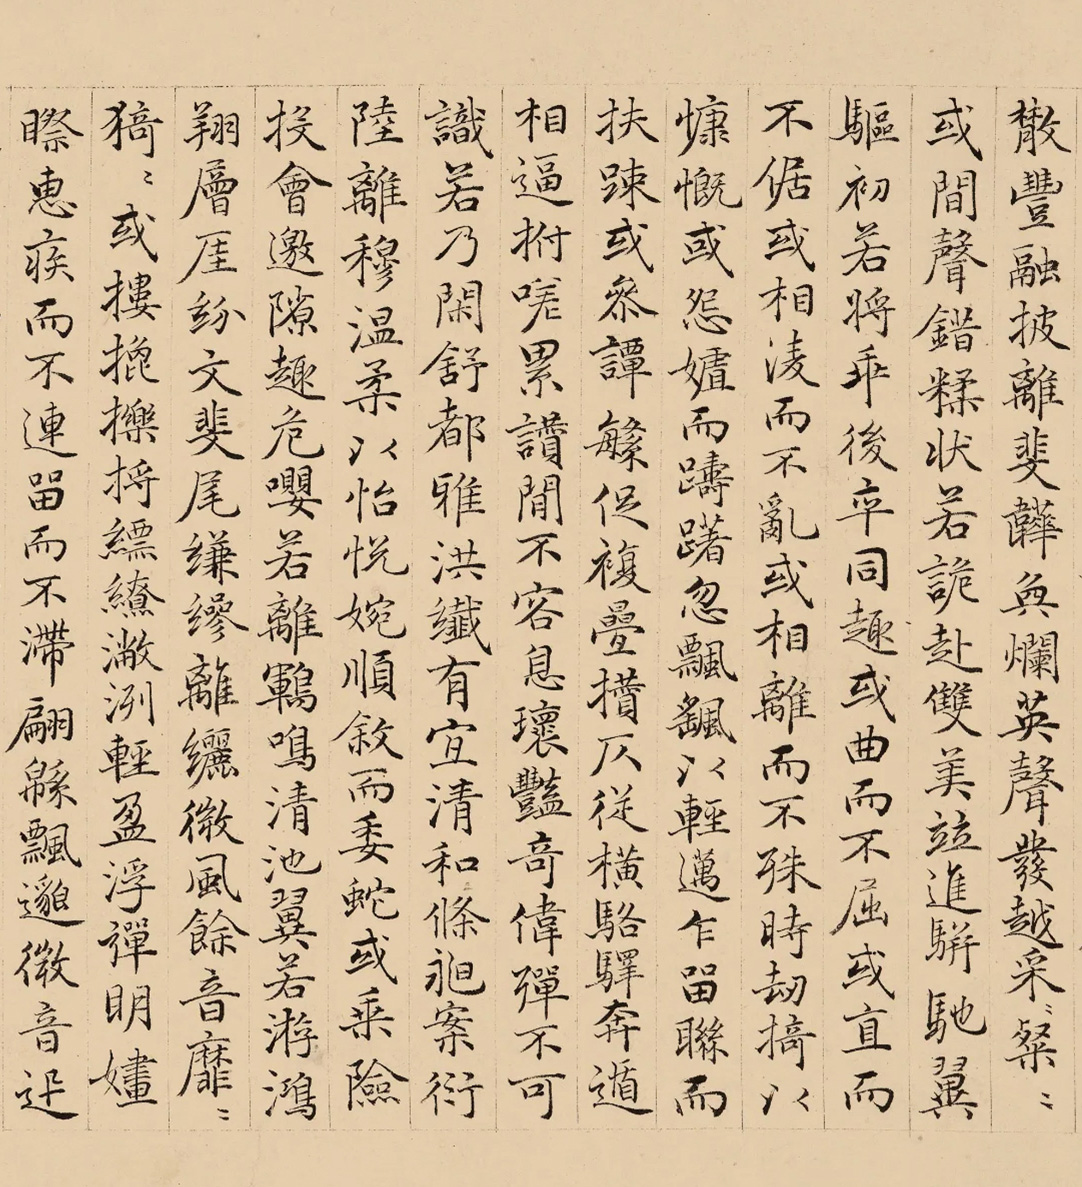 㪚豐融披離斐韡奐爛英聲發越采〻粲〻
或間聲錯糅狀若詭赴雙美竝進駢馳翼
驅初若將乖後卒同趣或曲而不屈或直而
不倨或相淩而不亂或相離而不殊時劫掎以
慷慨或怨㜘而躊躇忽飄颻以輕邁乍留聯而
扶疎或參譚繁促複疊攢仄從橫駱驛奔遁
相逼拊嗟累讚間不容息瓌豔奇偉殫不可
識若乃閑舒都雅洪纖有宜清和條昶案衍
陸離穆温柔以怡悅婉順敘而委蛇或乘險
投會邀隙趣危嚶若離鵾鳴清池翼若游鴻
翔層崖紛文斐尾縑縿離纚微風餘音靡〻
猗〻或摟㧙擽捋縹繚潎洌輕盈浮彈明嫿
惠疾而不連留而不滯翩緜飄邈微音迅